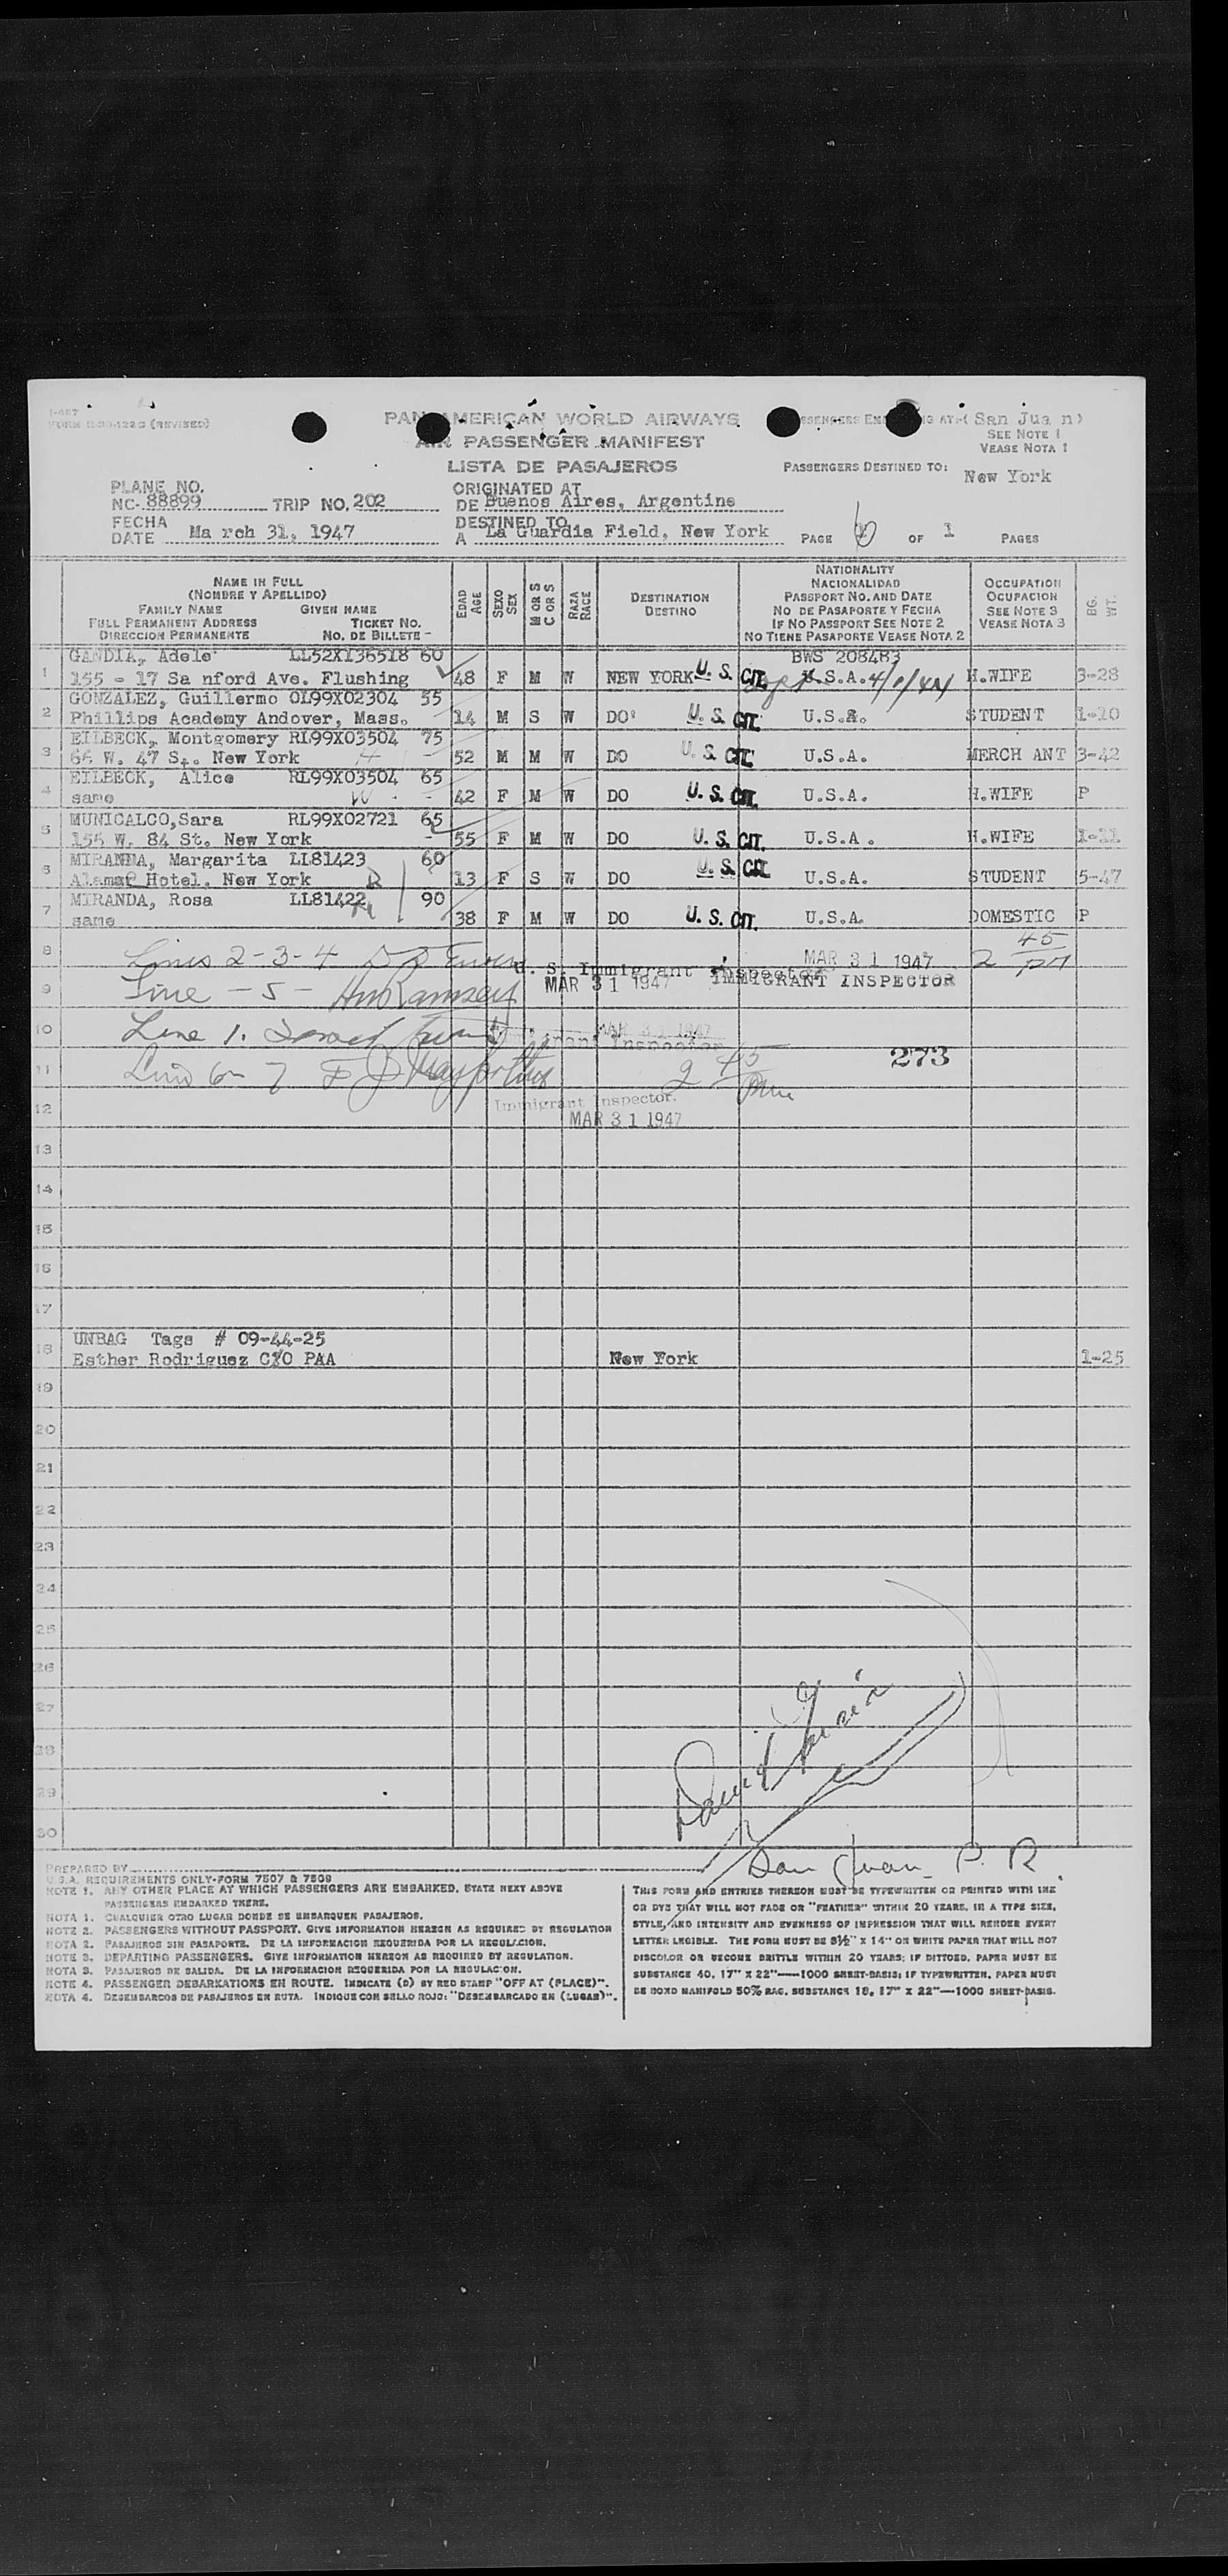 I-467
FORM (REVISED)
PAN AMERICAN WORLD AIRWAYS
AIR PASSENGER MANIFEST
LISTA DE PASAJEROS
AT: (San Jua n)
SEE NOTE 1
VEASE NOTA 1
PASSENGERS DESTINED TO: New York
PLANE NO.
NC- 88899 TRIP NO. 202
ORIGINATED AT
DE Buenos Aires, Argentina
FECHA
DATE Ma rch 31, 1947
DESTINED TO
A La Guardia Field, New York
PAGE 6 OF 1 PAGES
NAME IN FULL
(NOMBRE Y APELLIDO)
FAMILY NAME GIVEN NAME
FULL PERMANENT ADDRESS TICKET NO.
DIRECCION PERMANENTE NO. DE BILLETE
EDAD AGE
SEXO SEX
M OR S C OR S
RAZA RACE
DESTINATION
DESTINO
NATIONALITY
NACIONALIDAD
PASSPORT NO. AND DATE
NO DE PASAPORTE Y FECHA
IF NO PASSPORT SEE NOTE 2
NO TIENE PASAPORTE VEASE NOTA 2
OCCUPATION
OCUPACION
SEE NOTE 3
VEASE NOTA 3
BG. WT.
GANDIA, Adele LL52X136518 60 BWS 208483
1 155 - 17 Sa nford Ave. Flushing 48 F M W NEW YORK U. S. CIT. U.S.A. H.WIFE 3-28
GONZALEZ, Guillermo OL99X02304 55
2 Phillips Academy Andover, Mass. 14 M S W DO U. S. CIT. U.S.A. STUDENT 1-10
EILBECK, Montgomery RL99X03504 75
3 65 W. 47 St. New York 52 M M W DO U. S. CIT. U.S.A. MERCH ANT 3-42
EILBECK, Alice RL99X03504 65
4 same 42 F M W DO U. S. CIT. U.S.A. H.WIFE P
MUNICALCO, Sara RL99X02721 65
5 155 W. 84 St. New York 55 F M W DO U. S. CIT. U.S.A. H.WIFE 1-11
MIRANDA, Margarita LL81423 60
6 Alamac Hotel, New York 13 F S W DO U. S. CIT. U.S.A. STUDENT 5-47
MIRANDA, Rosa LL81422 90
7 same 38 F M W DO U. S. CIT. U.S.A. DOMESTIC P
8 Lines 2-3-4 MAR 31 1947 2 45 pm
U. S. Immigrant Inspector
9 Line - 5 - MAR 31 1947 IMMIGRANT INSPECTOR
10 Line 1. MAR 31 1947
Immigrant Inspector
11 Line 6 - 7 2 45 pm 273
Immigrant Inspector.
12 MAR 31 1947
13
14
15
16
17
UNBAG Tags # 09-44-25
18 Esther Rodriguez C/O PAA New York 1-25
19
20
21
22
23
24
25
26
27
28
29
30
San Juan P. R
PREPARED BY
U.S.A. REQUIREMENTS ONLY-FORM 7507 & 7509
NOTE 1. ANY OTHER PLACE AT WHICH PASSENGERS ARE EMBARKED, STATE NEXT ABOVE
PASSENGERS EMBARKED THERE.
NOTA 1. CUALQUIER OTRO LUGAR DONDE SE EMBARQUEN PASAJEROS.
NOTE 2. PASSENGERS WITHOUT PASSPORT, GIVE INFORMATION HEREON AS REQUIRED BY REGULATION
NOTA 2. PASAJEROS SIN PASAPORTE. DE LA INFORMACION REQUERIDA POR LA REGULACION.
NOTE 3. DEPARTING PASSENGERS. GIVE INFORMATION HEREON AS REQUIRED BY REGULATION.
NOTA 3. PASAJEROS DE SALIDA. DE LA INFORMACION REQUERIDA POR LA REGULACION.
NOTE 4. PASSENGER DEBARKATIONS EN ROUTE. INDICATE (D) BY RED STAMP "OFF AT (PLACE)".
NOTA 4. DESEMBARCOS DE PASAJEROS EN RUTA. INDIQUE CON SELLO ROJO: "DESEMBARCADO EN (LUGAR)".
THIS FORM AND ENTRIES THEREON MUST BE TYPEWRITTEN OR PRINTED WITH INK
OR DYE THAT WILL NOT FADE OR "FEATHER" WITHIN 20 YEARS, IN A TYPE SIZE,
STYLE, AND INTENSITY AND EVENNESS OF IMPRESSION THAT WILL RENDER EVERY
LETTER LEGIBLE. THE FORM MUST BE 8½" x 14" ON WHITE PAPER THAT WILL NOT
DISCOLOR OR BECOME BRITTLE WITHIN 20 YEARS; IF DITTOED, PAPER MUST BE
SUBSTANCE 40, 17" x 22"—1000 SHEET-BASIS; IF TYPEWRITTEN, PAPER MUST
BE BOND MANIFOLD 50% RAG, SUBSTANCE 18, 17" x 22"—1000 SHEET-BASIS.